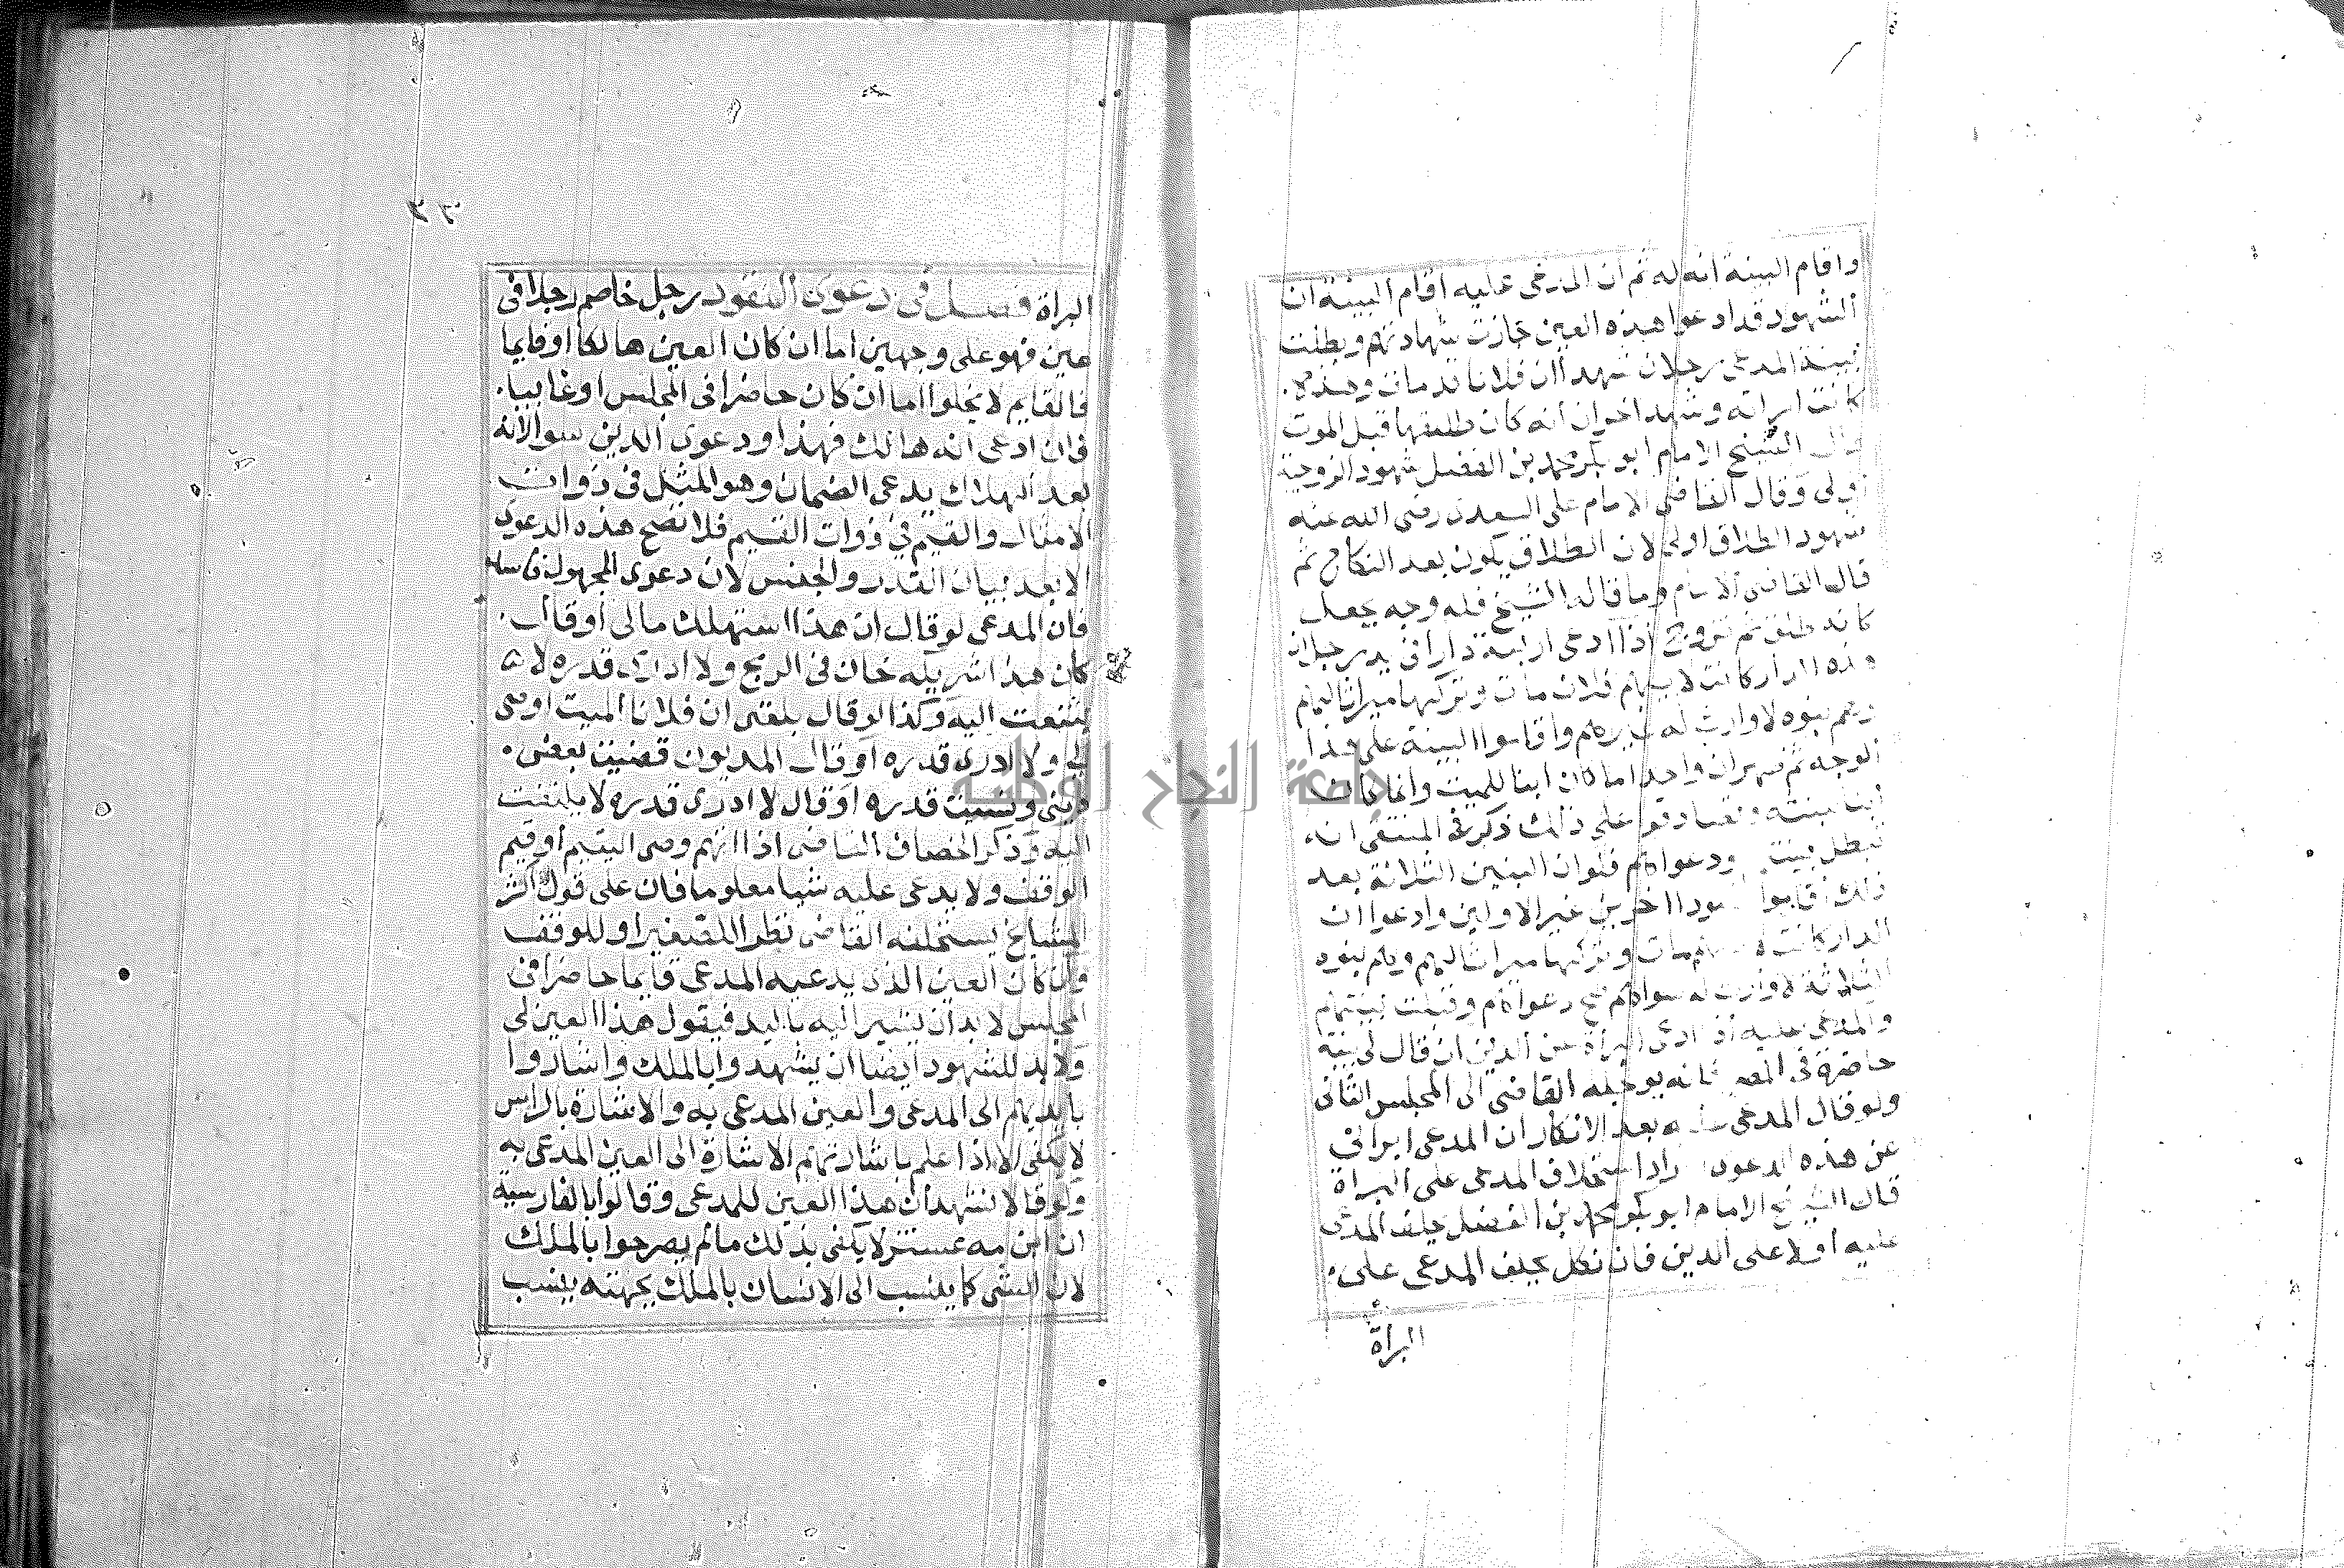 واقام البينة انه له ثم ان المدعى عليه اقام البينة ان
الشهود قد ادعوا هذه العين جازت شهادتهم وبطلت
بينة المدعى رجلان شهدا ان فلانا قد مات وهذه
كانت امراته وشهد اخران انه كان طلقها قبل الموت
قال الشيخ الامام ابو بكر محمد بن الفضل شهود الزوجية
اولى وقال القاضى الامام على السعدى رضى الله عنه
شهود الطلاق اولى لان الطلاق يكون بعد النكاح ثم
قال القاضى الامام وما قاله الشيخ فله وجه يجعل
كانه طلق ثم تزوج اذا ادعى اربعة دارا فى يد رجل ان
هذه الدار كانت لابيهم فلان مات وتركها ميراثا لهم
وهم بنوه لا وارث له غيرهم واقاموا البينة على هذا
الوجه ثم ان واحدا ما كان ابنا للميت وانما كان
ابن وتصادقوا على ذلك ذكر فى المنتقى انه
تبطل بينتهم ودعواهم فلو ان البنين الثلاثة بعد
ذلك اقاموا شهودا اخرين غير الاولين وادعوا ان
الدار كانت مات وتركها ميراثا لهم وهم بنوه
الثلاثة لا وارث له سواهم تصح دعواهم وقبلت بينتهم
والمدعى عليه اذا ادعى البراة عن الدين ان قال لى بينة
حاضرة فى المصر فانه يوجله القاضى الى المجلس الثانى
ولو قال المدعى عليه بعد الانكار ان المدعى ابرانى
عن هذه الدعوى اراد استحلاف المدعى على البراة
قال الشيخ الامام ابو بكر محمد بن الفضل يحلف المدعى
عليه اولا على الدين فان نكل يحلف المدعى على
البراة
٣٣
البراة فصل فى دعوى النقود رجل خاصم رجلا فى
عين فهو على وجهين اما ان كان العين هالكا او قايما
فالقايم لا يخلوا اما ان كان حاضرا فى المجلس او غايبا
فان ادعى انه هالك فهذا ودعوى الدين سوا لانه
بعد الهلاك يدعى الضمان وهو المثل فى ذوات
الامثال والقيم فى ذوات القيم فلا تصح هذه الدعوى
الا بعد بيان القدر والجنس لان دعوى المجهول فاسده
فان المدعى لو قال ان هذا استهلك مالى او قال
كان هذا شريكه خان فى الربح ولا ادرى قدره لا
يلتفت اليه وكذا لو قال بلغنى ان فلانا الميت اوصى
لى ولا ادرى قدره او قال المديون قضيت بعض
دينى ونسيت قدره او قال لا ادرى قدره لا يلتفت
اليه وذكر الخصاف القاضى اذا اتهم وصى اليتيم او قيم
الوقف ولا يدعى عليه شيا معلوما فان على قول اكثر
المشايخ يستحلفه القاضى نظرا للصغير او للوقف
وان كان العين الذى يدعيه المدعى قايما حاضرا فى
المجلس لا بد ان يشير اليه باليد فيقول هذا العين لى
ولا بد للشهود ايضا ان يشهدوا بالملك واشاروا
بايديهم الى المدعى والعين المدعى به والاشارة بالراس
لا يكفى الا اذا علم باشارتهم الاشارة الى العين المدعى به
ولو قالا نشهد ان هذا العين للمدعى وقالوا بالفارسية
ان لا يكفى بذلك ما لم يصرحوا بالملك
لان الشى كما ينسب الى الانسان بالملك بجهته ينسب
جامعة النجاح الوطنية